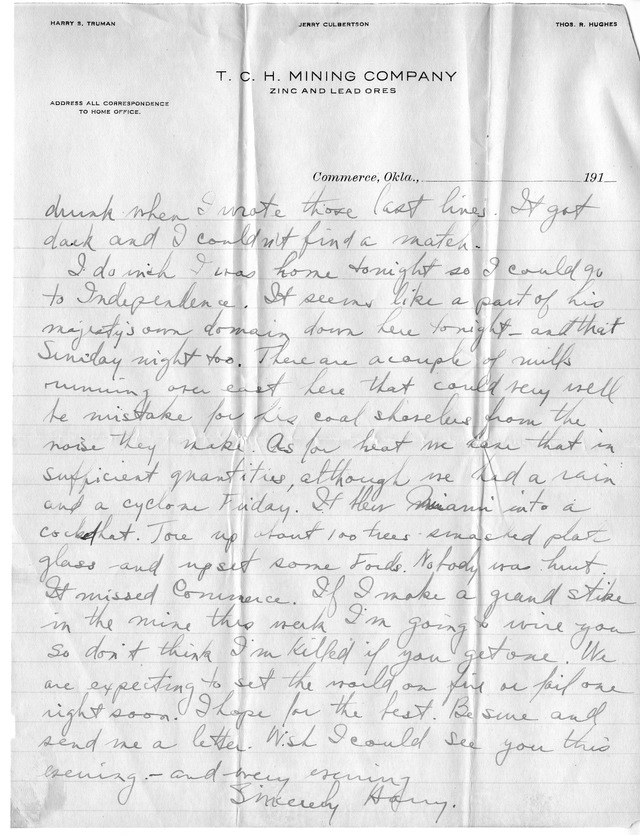 HARRY S. TRUMAN JERRY CULBERTSON THOS. R. HUGHES
T. C. H. MINING COMPANY
ZINC AND LEAD ORES
ADDRESS ALL CORRESPONDENCE
TO HOME OFFICE.
Commerce, Okla., 191
drunk when I wrote those last lines. It got
dark and I couldn't find a match.
I do wish I was home tonight so I could go
to Independence. It seems like a part of his
majesty's own domain down here tonight - and that
Sunday night too. There are a couple of mills
running over east here that could very well
be mistake for his coal shovelers from the
noise they make. As for heat we have that in
sufficient quantities, although we had a rain
and a cyclone Friday. It blew Miami into a
cocked hat. Tore up about 100 trees smashed plate
glass and upset some Fords. Nobody was hurt.
It missed Commerce. If I make a grand strike
in the mine this week I'm going to wire you
so don't think I'm killed if you get one. We
are expecting to set the world on fire or fail one
right soon. I hope for the best. Be sure and
send me a letter. Wish I could see you this
evening - and every evening
Sincerely Harry.